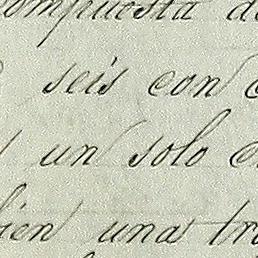 compuesta de
seis con
un solo
bien una tra